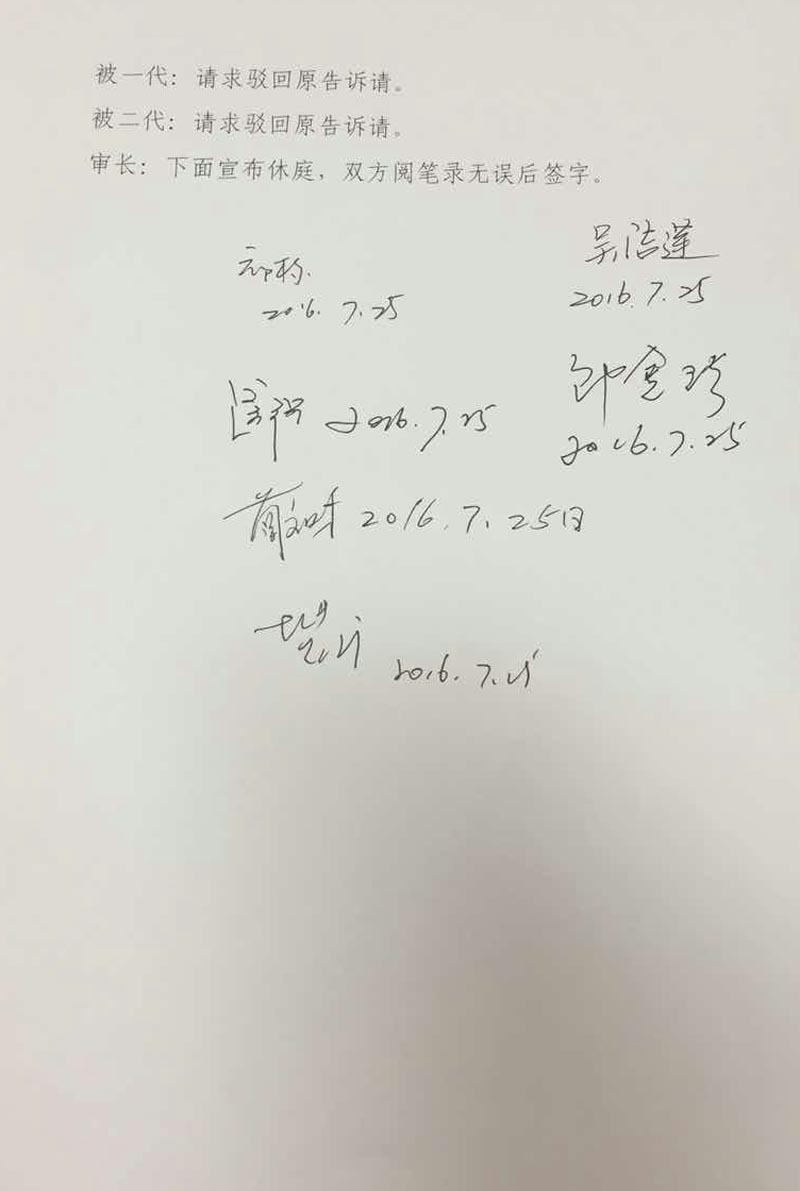 被一代：请求驳回原告诉请。
被二代：请求驳回原告诉请。
审长：下面宣布休庭，双方阅笔录无误后签字。
吴洁莲
2016.7.25
2016.7.25
2016.7.25
2016.7.25
2016.7.25日
2016.7.25